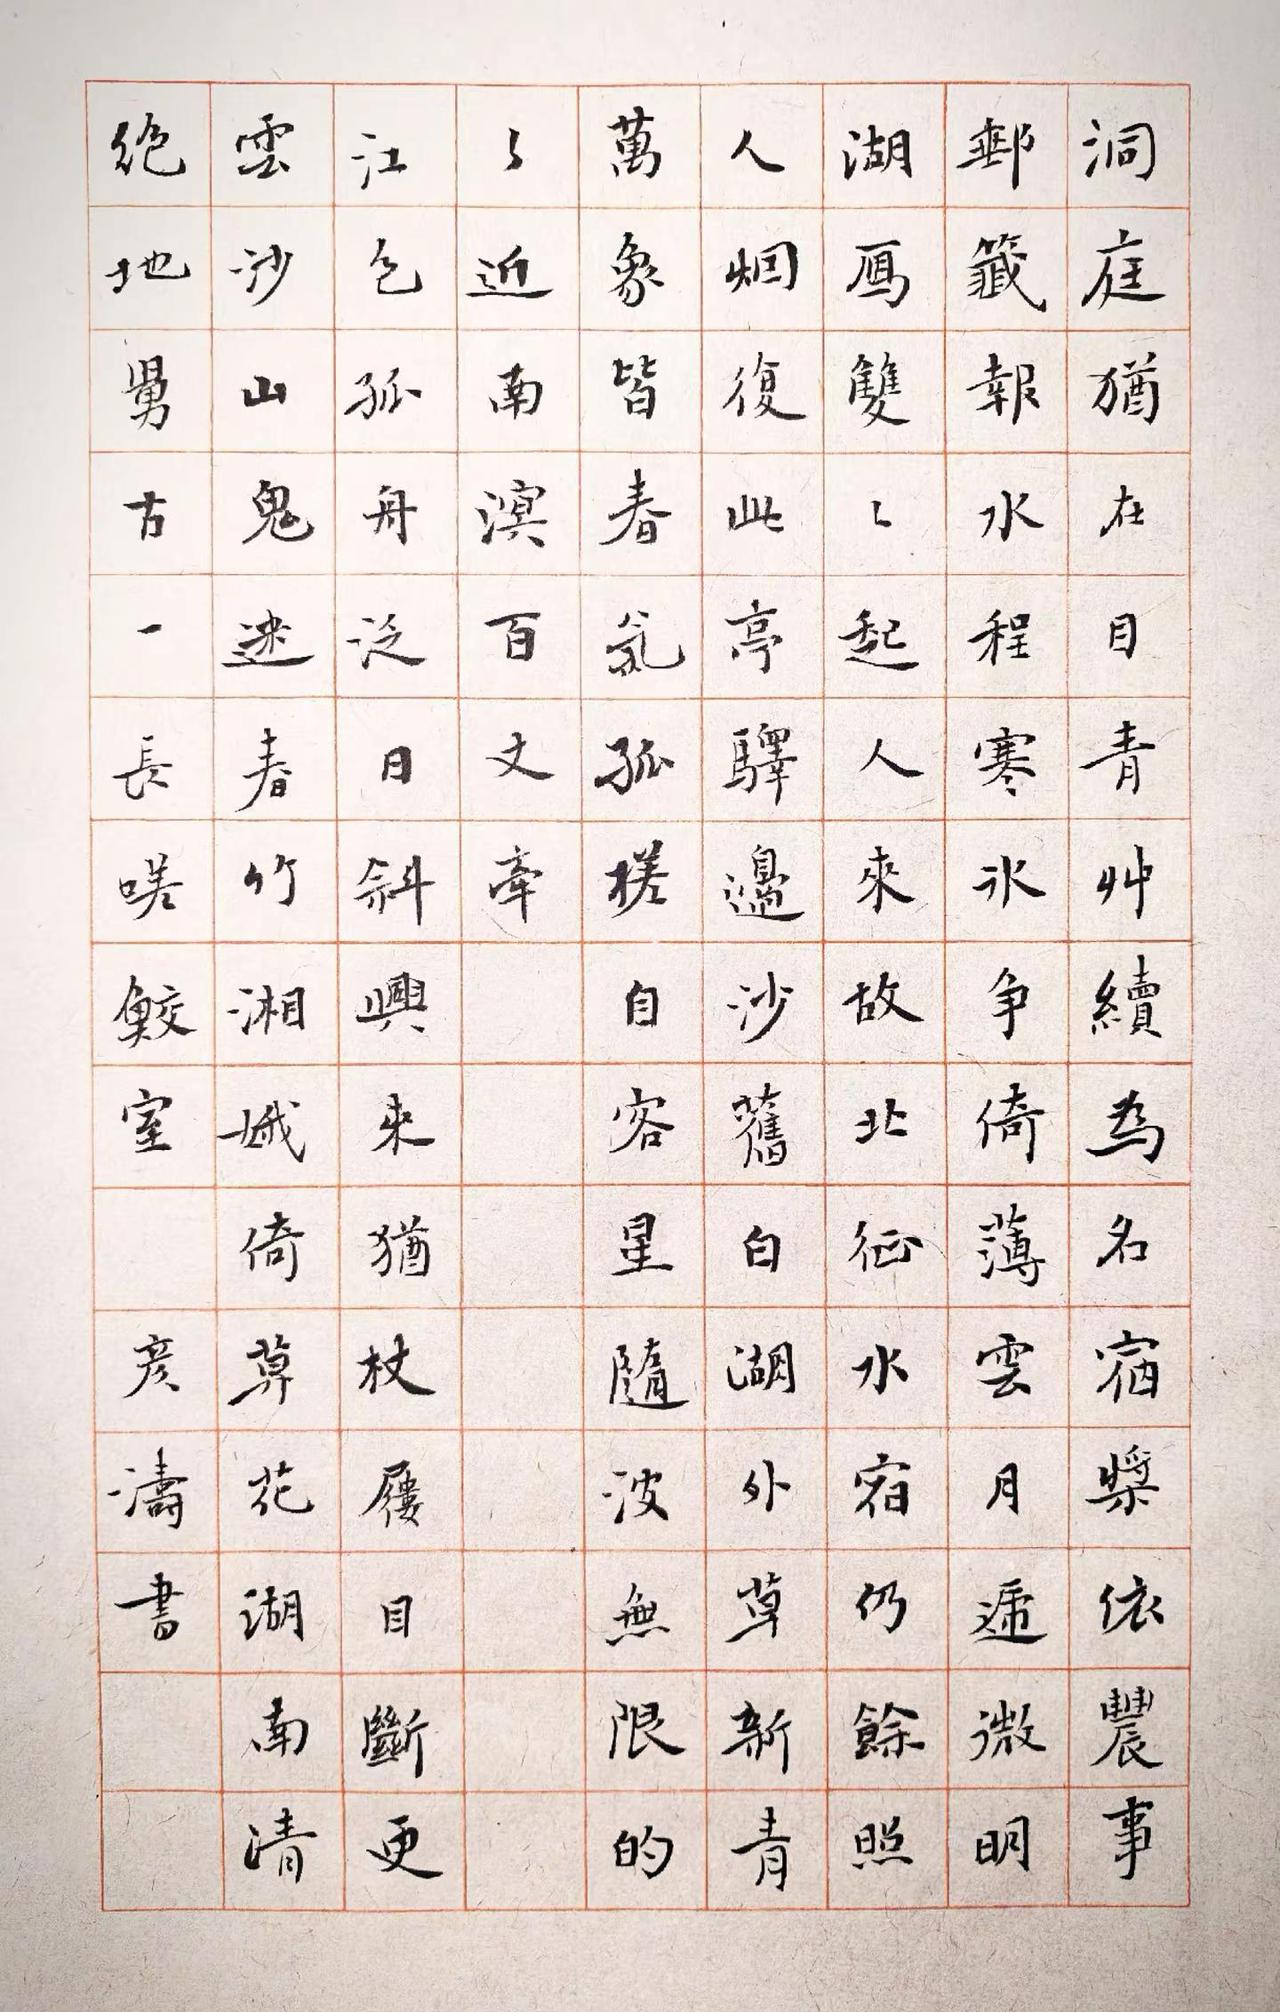 洞庭猶在目青艸續為名宿槳依農事
郵籤報水程寒冰争倚薄雲月遞微明
湖鴈雙〻起人來故北征水宿仍餘照
人烟復此亭驛邊沙舊白湖外草新青
萬象皆春氣孤槎自客星隨波無限的
〻近南溟百丈牽
江色孤舟泛日斜興來猶杖屨目斷更
雲沙山鬼迷春竹湘娥倚草花湖南清
絶地舅古一長嗟鮫室 彦濤書